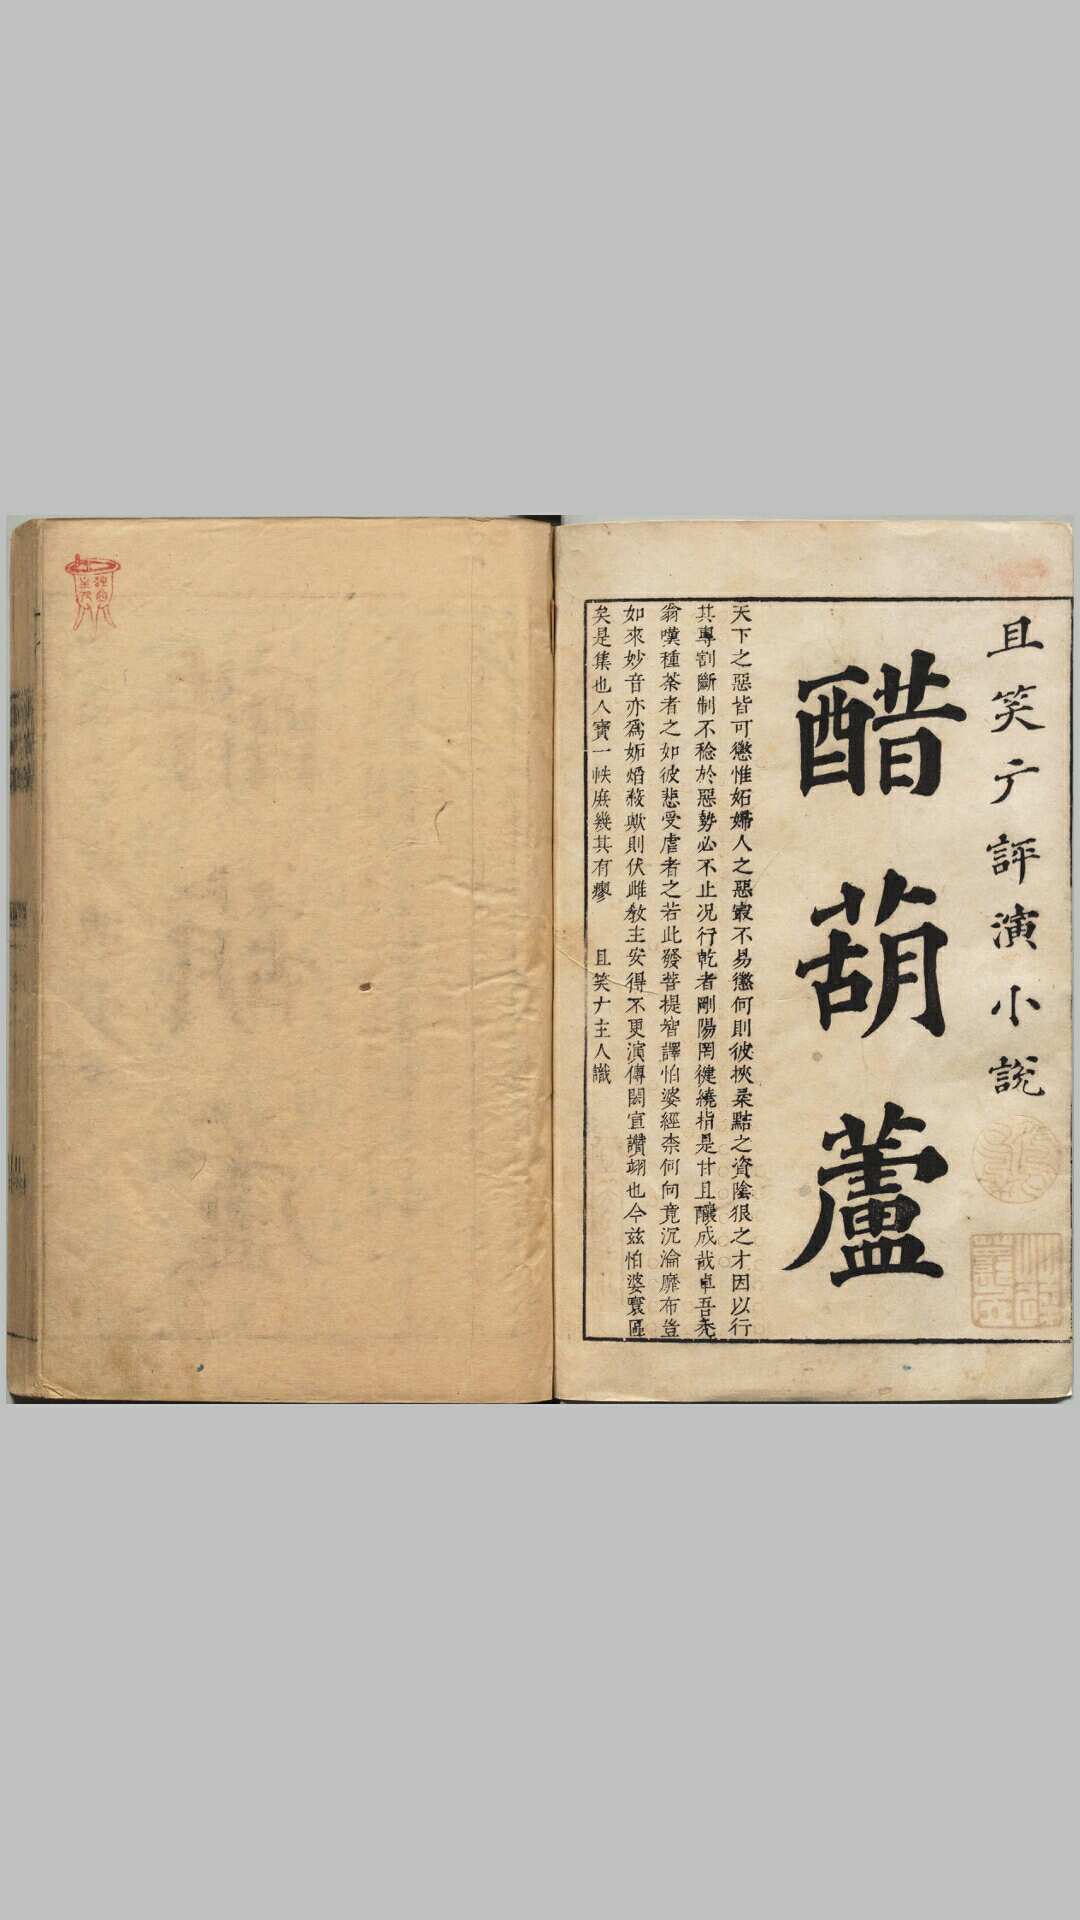 且笑广評演小說
醋葫蘆
天下之惡皆可懲惟妬婦人之惡㝡不易懲何則彼挾柔黠之資陰狠之才因以行
其專割斷制不稔於惡勢必不止况行乾者剛陽罔健繞指是甘且釀成哉卓吾禿
翁嘆種荼者之如彼悲受虐者之若此發菩提智譯怕婆經柰何向竟沉淪靡布豈
如來妙音亦爲妬婚殺歟則伏雌教主安得不更演傳閎宣讚翊也今兹怕婆寰區
矣是集也人寶一帙庶幾其有瘳 且笑广主人識